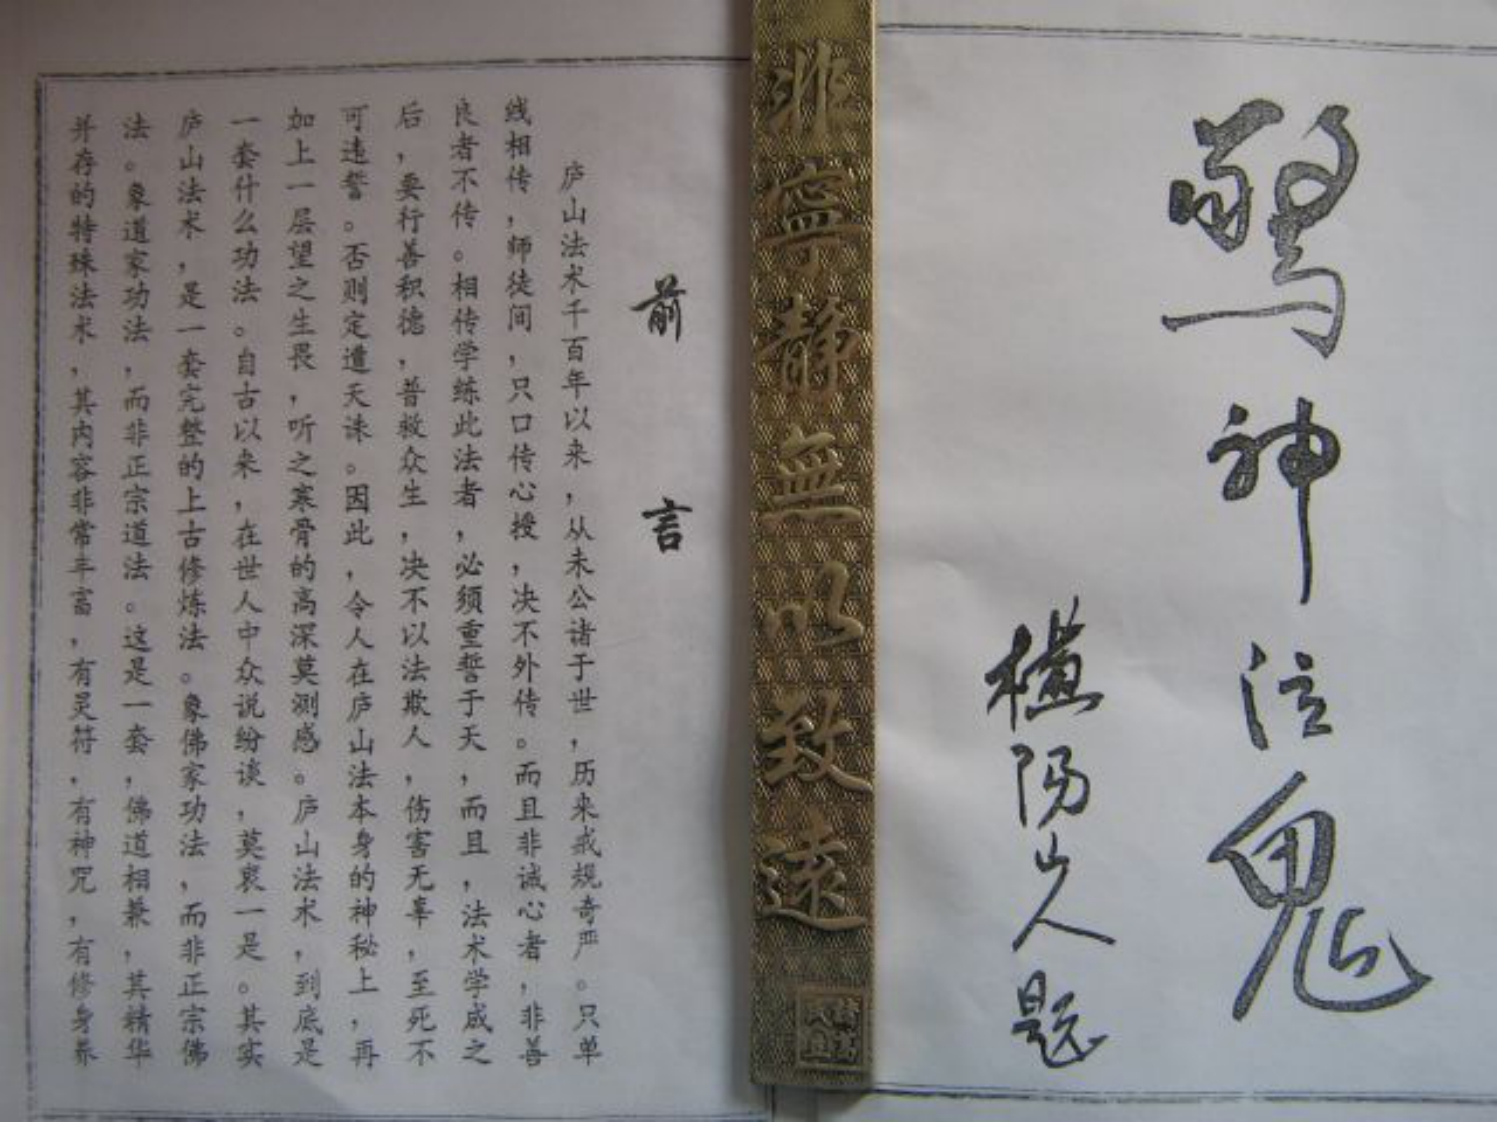 驚神泣鬼
横陽山人题
非寧静無以致遠
前言
庐山法术千百年以来，从未公诸于世，历来戒规奇严。只单
线相传，师徒间，只口传心授，决不外传。而且非诚心者，非善
良者不传。相传学练此法者，必须重誓于天，而且，法术学成之
后，要行善积德，普救众生，决不以法欺人，伤害无辜，至死不
可违誓。否则定遭天诛。因此，令人在庐山法本身的神秘上，再
加上一层望之生畏，听之寒骨的高深莫测感。庐山法术，到底是
一套什么功法。自古以来，在世人中众说纷谈，莫衷一是。其实
庐山法术，是一套完整的上古修炼法。象佛家功法，而非正宗佛
法。象道家功法，而非正宗道法。这是一套，佛道相兼，其精华
并存的特殊法术，其内容非常丰富，有灵符，有神咒，有修身养